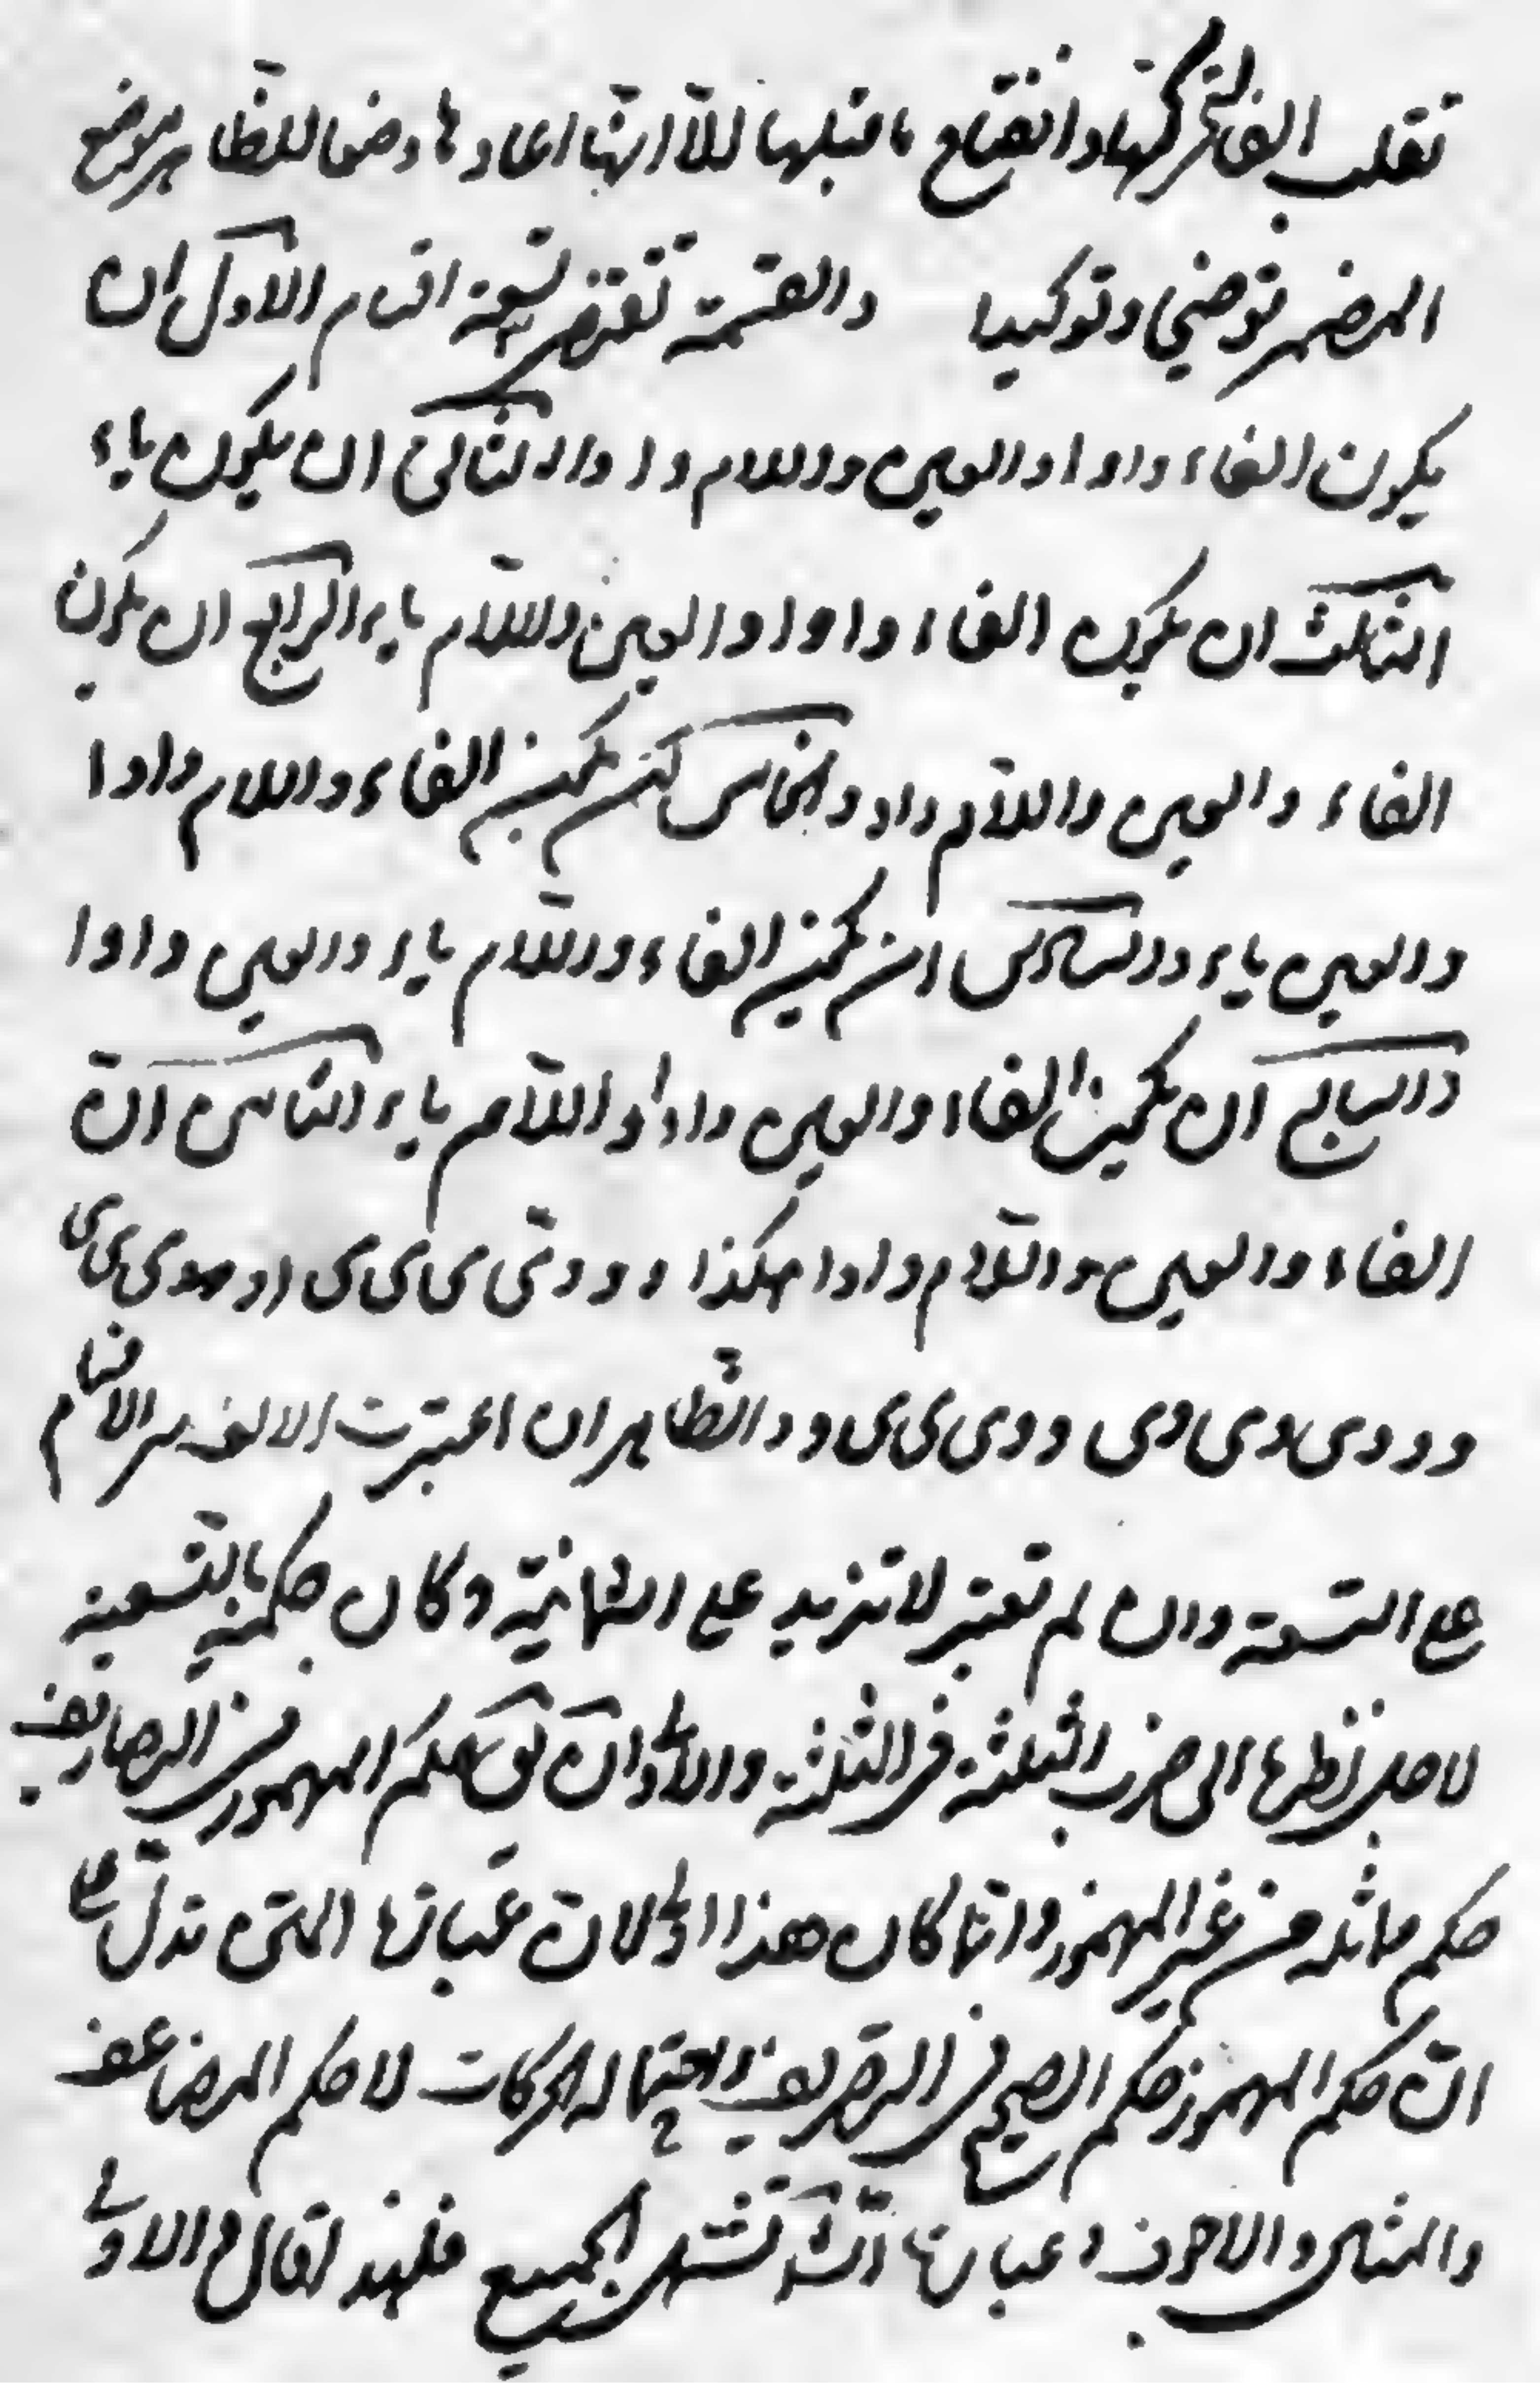 تقلب الفا لتحركها وانفتاح ما قبلها الا انها اعادها وضعا للظاهر موضع
المضمر توضيحا وتوكيدا والقسمة تقتضى تسعة اقسام الاول ان
يكون الفاء واوا والعين واللام واوا والثانى ان يكون ياء
الثالث ان يكون الفاء واوا والعين واللام ياء الرابع ان يكون
الفاء والعين واللام واو والخامس ان يكون الفاء واللام واوا
والعين ياء والسادس ان يكون الفاء واللام ياء والعين واوا
والسابع ان يكون الفاء والعين واوا واللام ياء الثامن ان
الفاء والعين واللام واوا هكذا و و و ى ى ى ى ى ى
و و و ى و ى و ى و و ى ى ى ى و و الظاهر ان اعتبرت الالف الاقسام
على التسعة وان لم تعتبر لا تزيد على الثمانية وكان حكمه بالتسعة
لاجل نظرها الى ضرب الثلثة فى الثلثة والاولى ان حكم المهموز من التصاريف
حكم ماثله من غير المهموز وانما كان هذا اولى لان عبارتها التى تدل على
ان حكم المهموز حكم الصحيح فى التصريف واحتماله الحركات لا حكم المضاعف
والمثال والاجوف وعبارتها تشتمل الجميع فلهذا قال والاولى